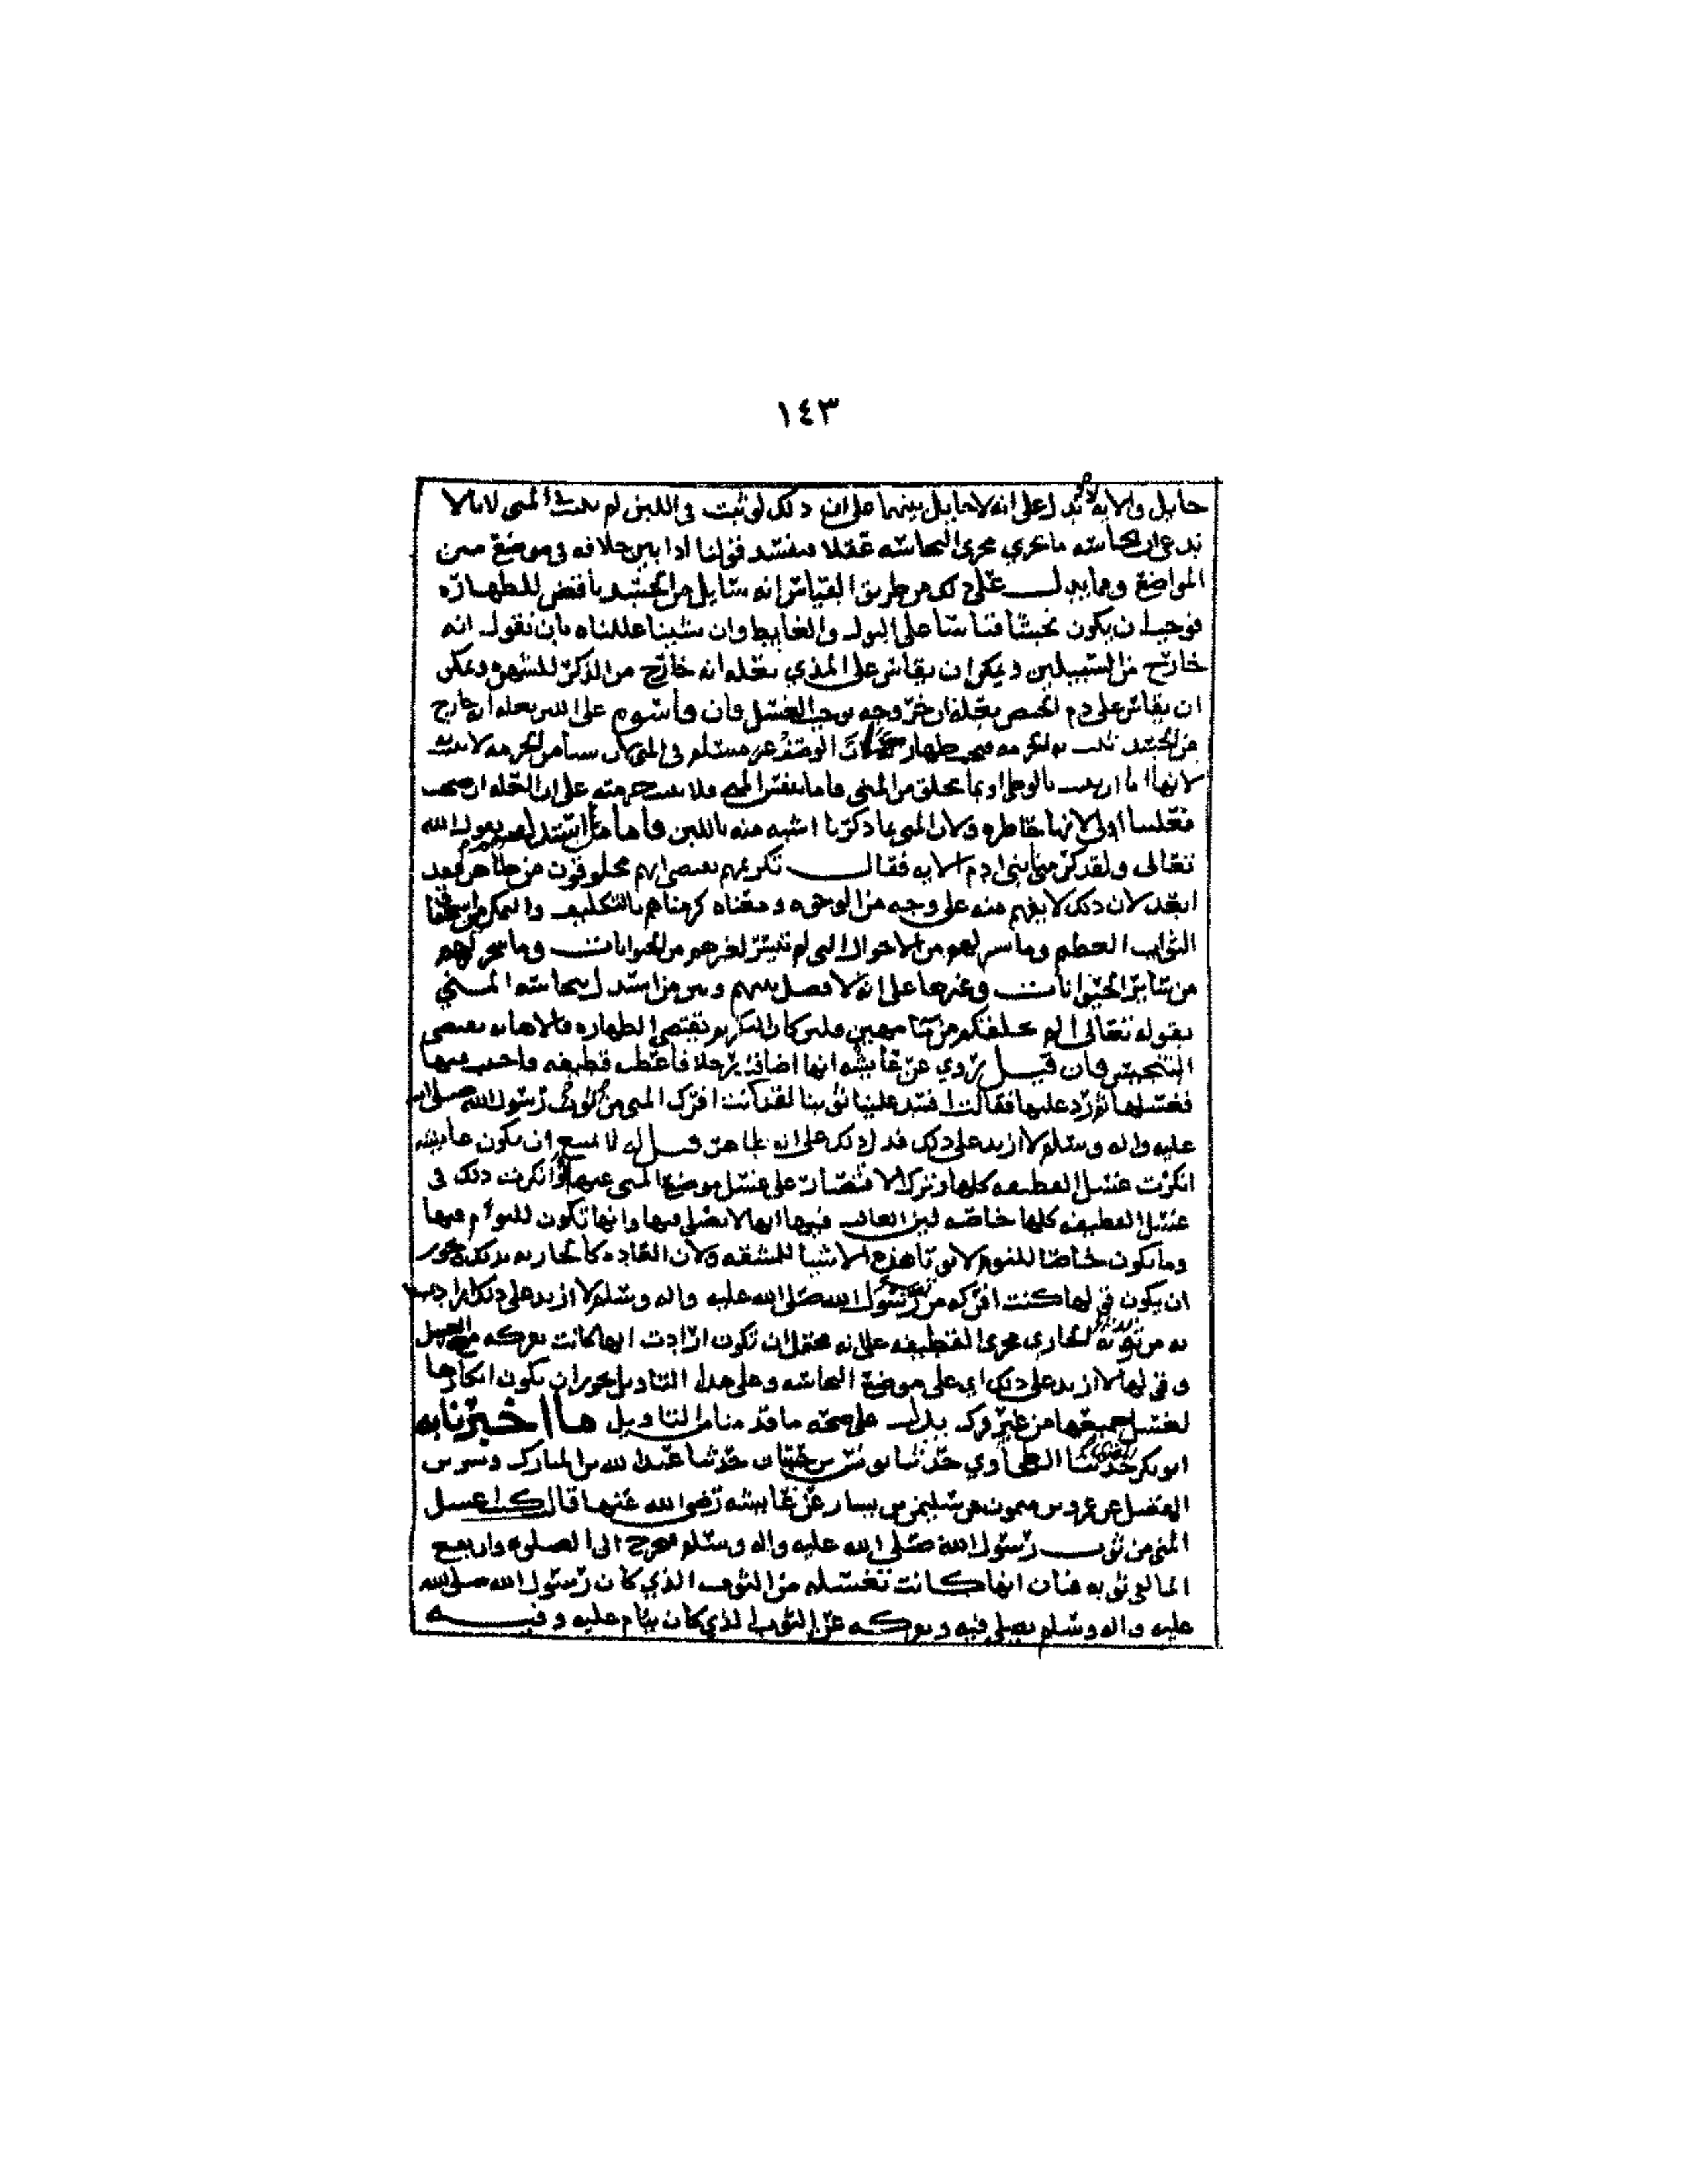 ١٤٣
حايل والايه لا تدل على انه لا حايل بينهما على ان ذلك لو ثبت في اللبن لم يثبت في المني لانا لا
ندعي ان النجاسه ما تجري مجرى النجاسه عقلا فيفسد قولنا اذا بين خلافه في موضع من
المواضع ومما يدل على ذلك من طريق القياس انه سايل من الجسد ناقض للطهاره
فوجب ان يكون نجسا قياسا على البول والغايط وان شينا عللناه بان نقول انه
خارج من السبيلين ويمكن ان يقاس على المذي بعله انه خارج من الذكر للشهوه ويمكن
ان يقاس على دم الحيض بعله ان خروجه يوجب الغسل فان قاسوه على اللبن بعله انه خارج
من الجسد تثبت به الحرمه فيجب طهارته كان الوصف غير مسلم في المني لان سيا من الحرمه لا يثبت
لانها انما تثبت بالوطي او بما يخلق من المني فاما نفس المني فلا يثبت حرمته على ان العله ان صحت
فعلتنا اولى لانها خاطره ولان المني بما ذكرنا اشبه منه باللبن فاما من استدل بقول الله
تعالى ولقد كرمنا بني ادم الايه فقال تكريمهم يقتضي انهم مخلوقون من طاهر فقد
ابعد لان ذلك لا يفهم منه على وجه من الوجوه ومعناه كرمناهم بالتكليف والتمكين من استحقاق
الثواب العظيم وما يسر لهم من الاحوال التي لم تتيسر لغيرهم من الحيوانات وما سخر لهم
من ساير الحيوانات وغيرها على انه لا فصل بينهم وبين من استدل بنجاسه المني
بقوله تعالى الم نخلقكم من ماء مهين فلين كان التكريم يقتضي الطهاره فالاهانه تقتضي
التنجيس فان قيل روي عن عايشه انها اضافت رجلا فاعطته قطيفه فاحتلم فيها
فغسلها ثم رد عليها فقالت افسد علينا ثوبنا لقد كنت افرك المني من ثوب رسول الله صلى الله
عليه واله وسلم لا ازيد على ذلك فدل ذلك على انه طاهر قيل له لا يمتنع ان يكون عايشه
انكرت غسل القطيفه كلها وترك الاقتصار على غسل موضع المني منها وانكرت ذلك في
غسل القطيفه كلها خاصه لان الغالب فيها انها لا يصلى فيها وانها تكون للنوم فيها
وما يكون خاصا للنوم لا يوتا هذه الاشيا للمشقه ولان العاده كالجاريه بذلك ويجوز
ان يكون قولها كنت افركه من ثوب رسول الله صلى الله عليه واله وسلم لا ازيد على ذلك ارادت
به من ثوبه الذي الجاري مجرى القطيفه على انه يحتمل ان تكون ارادت انها كانت تفركه مع الغسل
وقولها لا ازيد على ذلك اي على موضع النجاسه وعلى هذا التاويل يجوز ان يكون انكارها
لغسل جميعها من غير فرك يدل على صحه ما قدمناه من التاويل ما اخبرنا به
ابو بكر المقري حدثنا الطحاوي حدثنا يونس حدثنا يحيى بن حسان حدثنا عبد الله بن المبارك وبشر بن
المفضل عن عمرو بن ميمون عن سليمن بن يسار عن عايشه رضي الله عنها قالت كنت اغسل
المني من ثوب رسول الله صلى الله عليه واله وسلم فيخرج الى الصلوه وان بقع
الما لفي ثوبه فبان انها كانت تغسله من الثوب الذي كان رسول الله صلى الله
عليه واله وسلم يصلي فيه وتفركه عن الثوب الذي كان ينام عليه وفيه